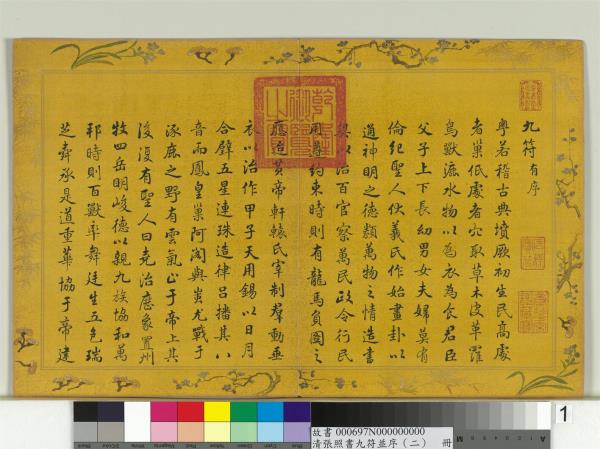 九符有序
粵若稽古典墳厥初生民高處
者巢低處者穴取草木皮革羅
鳥獸漉水物以為衣為食君臣
父子上下長幼男女夫婦莫有
倫紀聖人伏羲氏作始畫卦以
通神明之德類萬物之情造書
契以治百官察萬民政令行民
用尊約束時則有龍馬負圖之
應迨黃帝軒轅氏宰制羣動垂
衣以治作甲子天用錫以日月
合璧五星連珠造律呂播其八
音而鳳皇巢阿閣與蚩尤戰于
涿鹿之野有雲氣止于帝上其
後復有聖人曰堯治應象置州
牧四岳明峻德以親九族協和萬
邦時則百獸率舞廷生五色瑞
芝舜承是道重華協于帝建
乾隆御覽之
1
故書 000697N000000000
清張照書九符並序(二) 冊